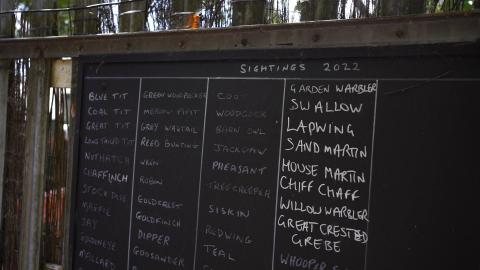 SIGHTINGS 2022
BLUE TIT
COAL TIT
GREAT TIT
LONG TAILED TIT
NUTHATCH
CHAFFINCH
STOCK DOVE
MAGPIE
JAY
GOLDENEYE
MALLARD
GREEN WOODPECKER
MEADOW PIPIT
GREY WAGTAIL
REED BUNTING
WREN
ROBIN
GOLDCREST
GOLDFINCH
DIPPER
GOOSANDER
COOT
WOODCOCK
BARN OWL
JACKDAW
PHEASANT
TREECREEPER
SISKIN
REDWING
TEAL
GARDEN WARBLER
SWALLOW
LAPWING
SAND MARTIN
HOUSE MARTIN
CHIFF CHAFF
WILLOW WARBLER
GREAT CRESTED
GREBE
WHOOPER